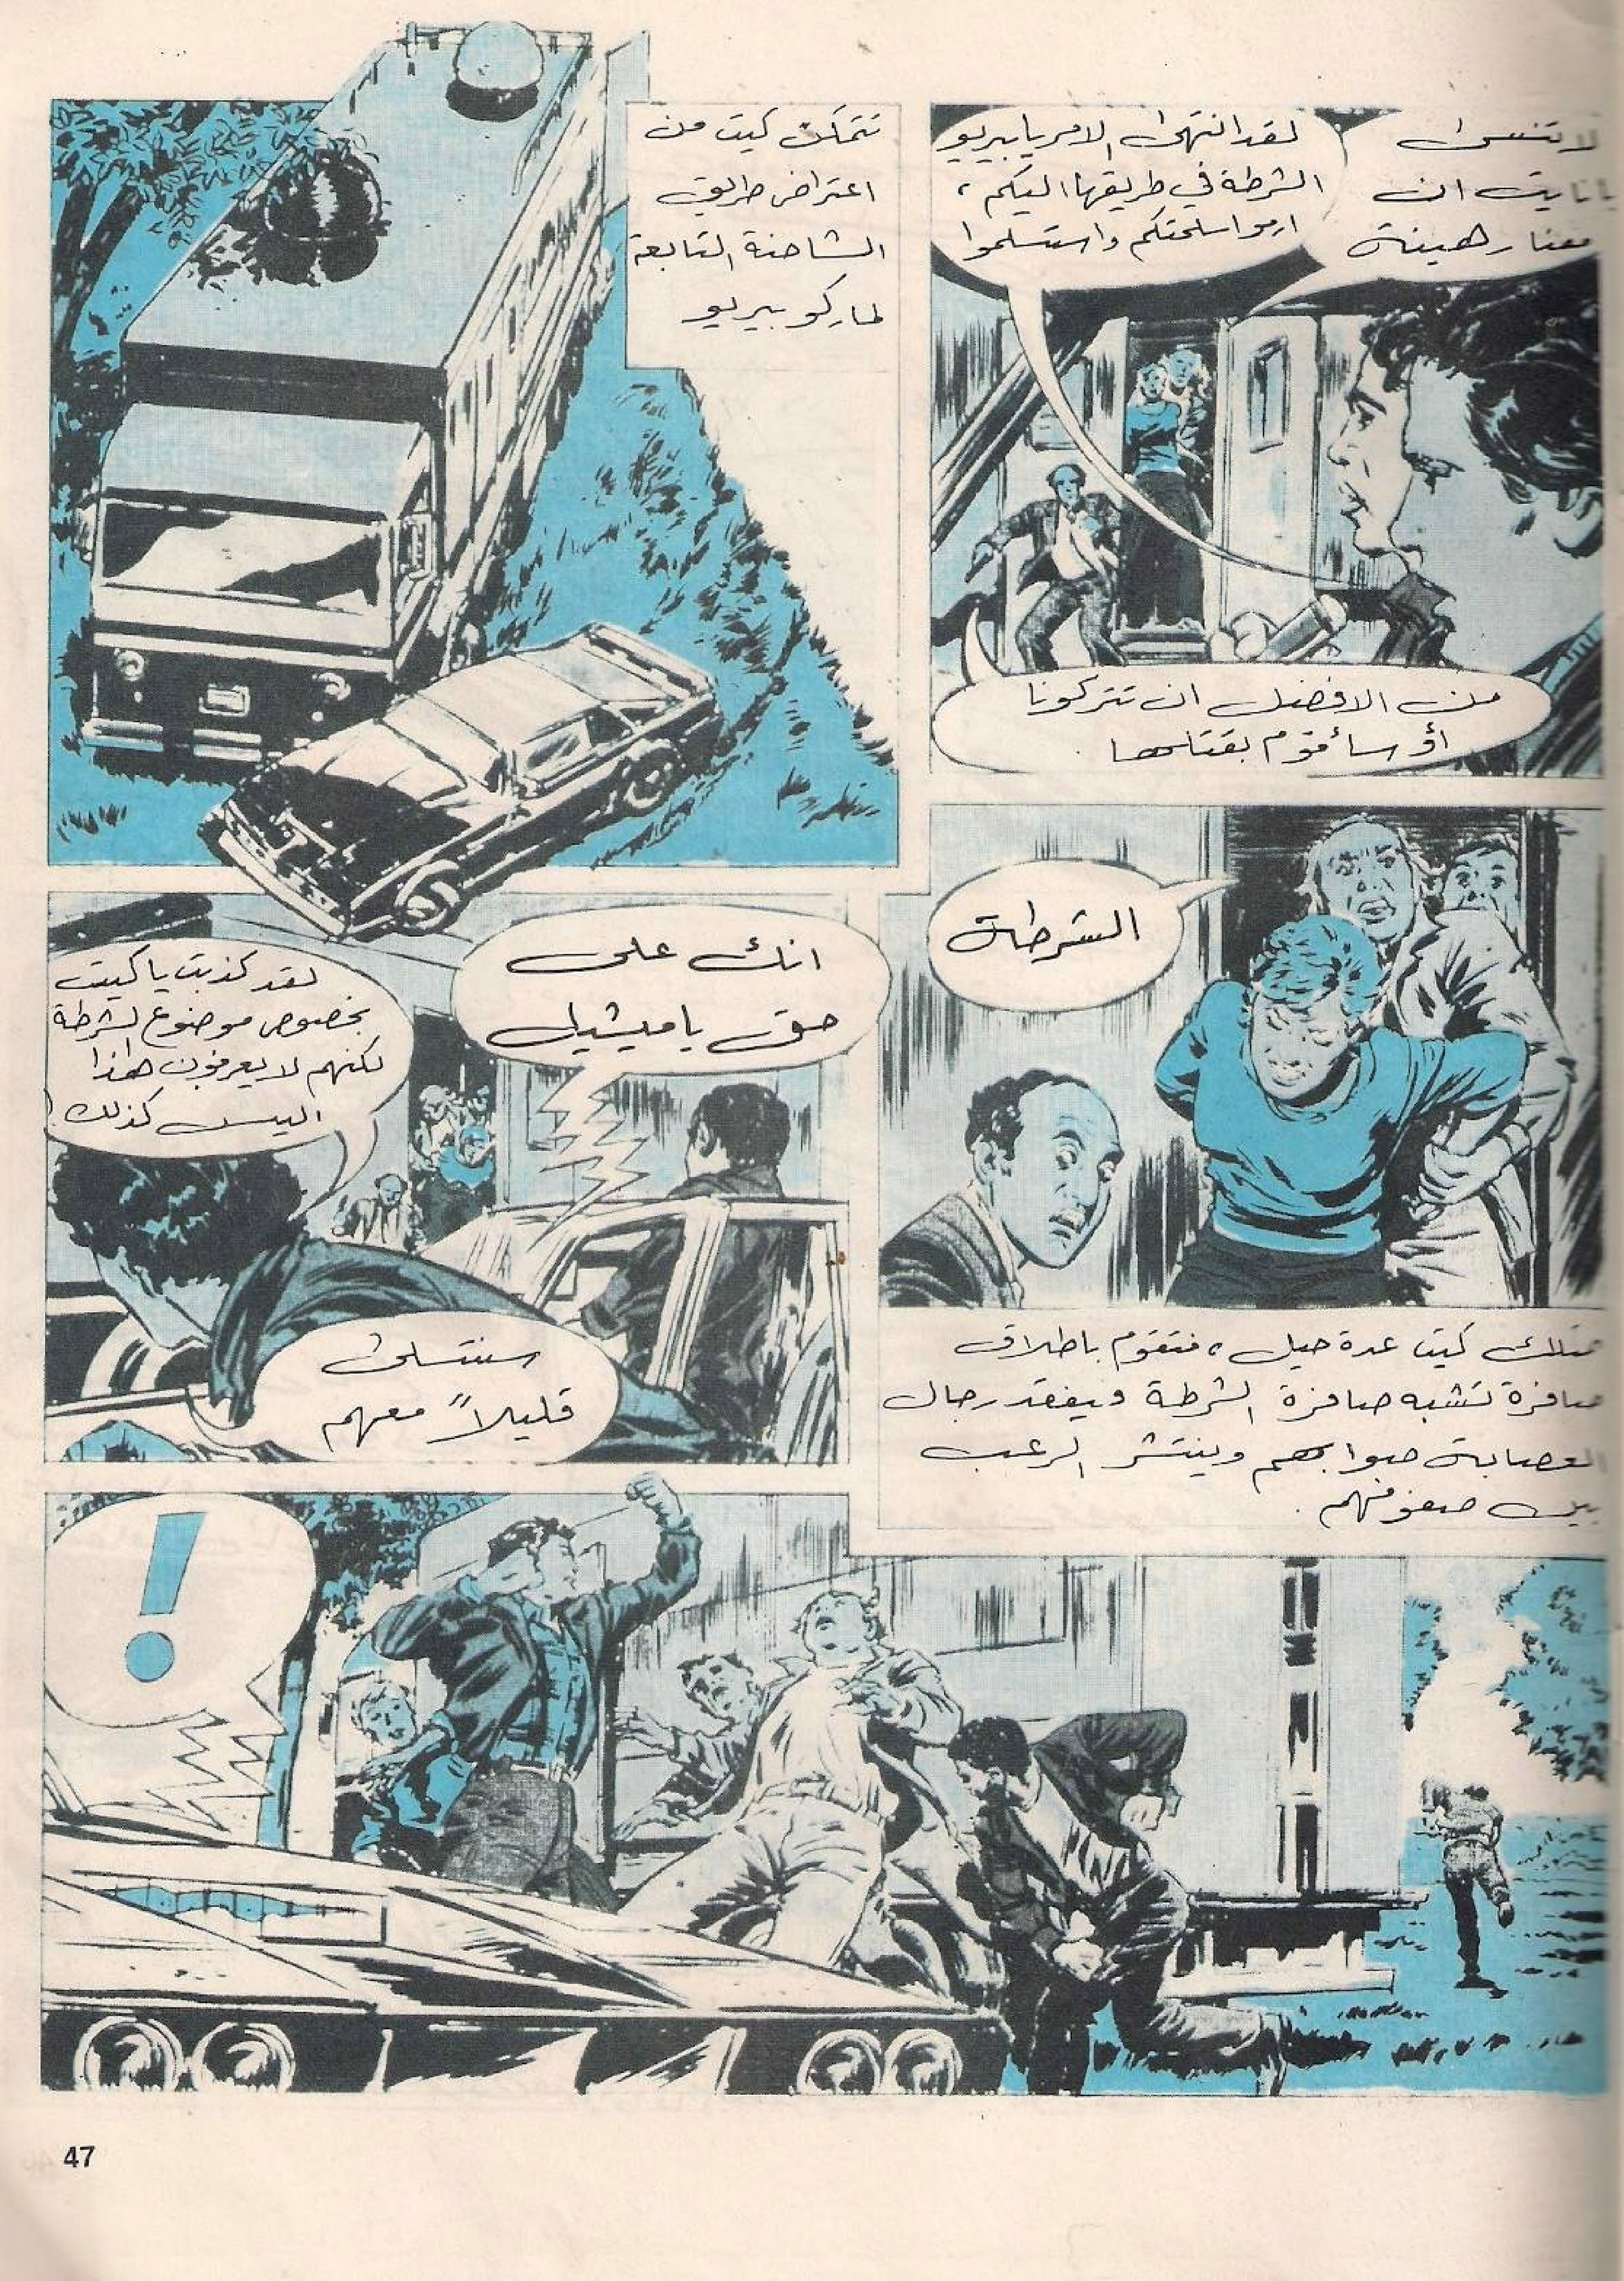 لقد انتهى الامر يابيريو
الشرطة في طريقها اليكم،
ارموا سلحتكم واستسلموا
لا تنسى
ان
معنا رهينة
من الافضل ان تتركونا
أو سأقوم بقتلها .
تتمكن كيت من
اعتراض طريق
الشاحنة التابعة
لماركو بيريو
الشرطة
تمتلك كيت عدة حيل، فتقوم باطلاق
صافرة تشبه صافرة الشرطة ويفقد رجال
العصابة صوابهم وينتشر الرعب
بين صفوفهم .
انك على
حق ياميشيل
لقد كذبت ياكيت
بخصوص موضوع الشرطة
لكنهم لا يعرفون هذا
اليس كذلك !
سنتسلى
قليلاً معهم
!
47